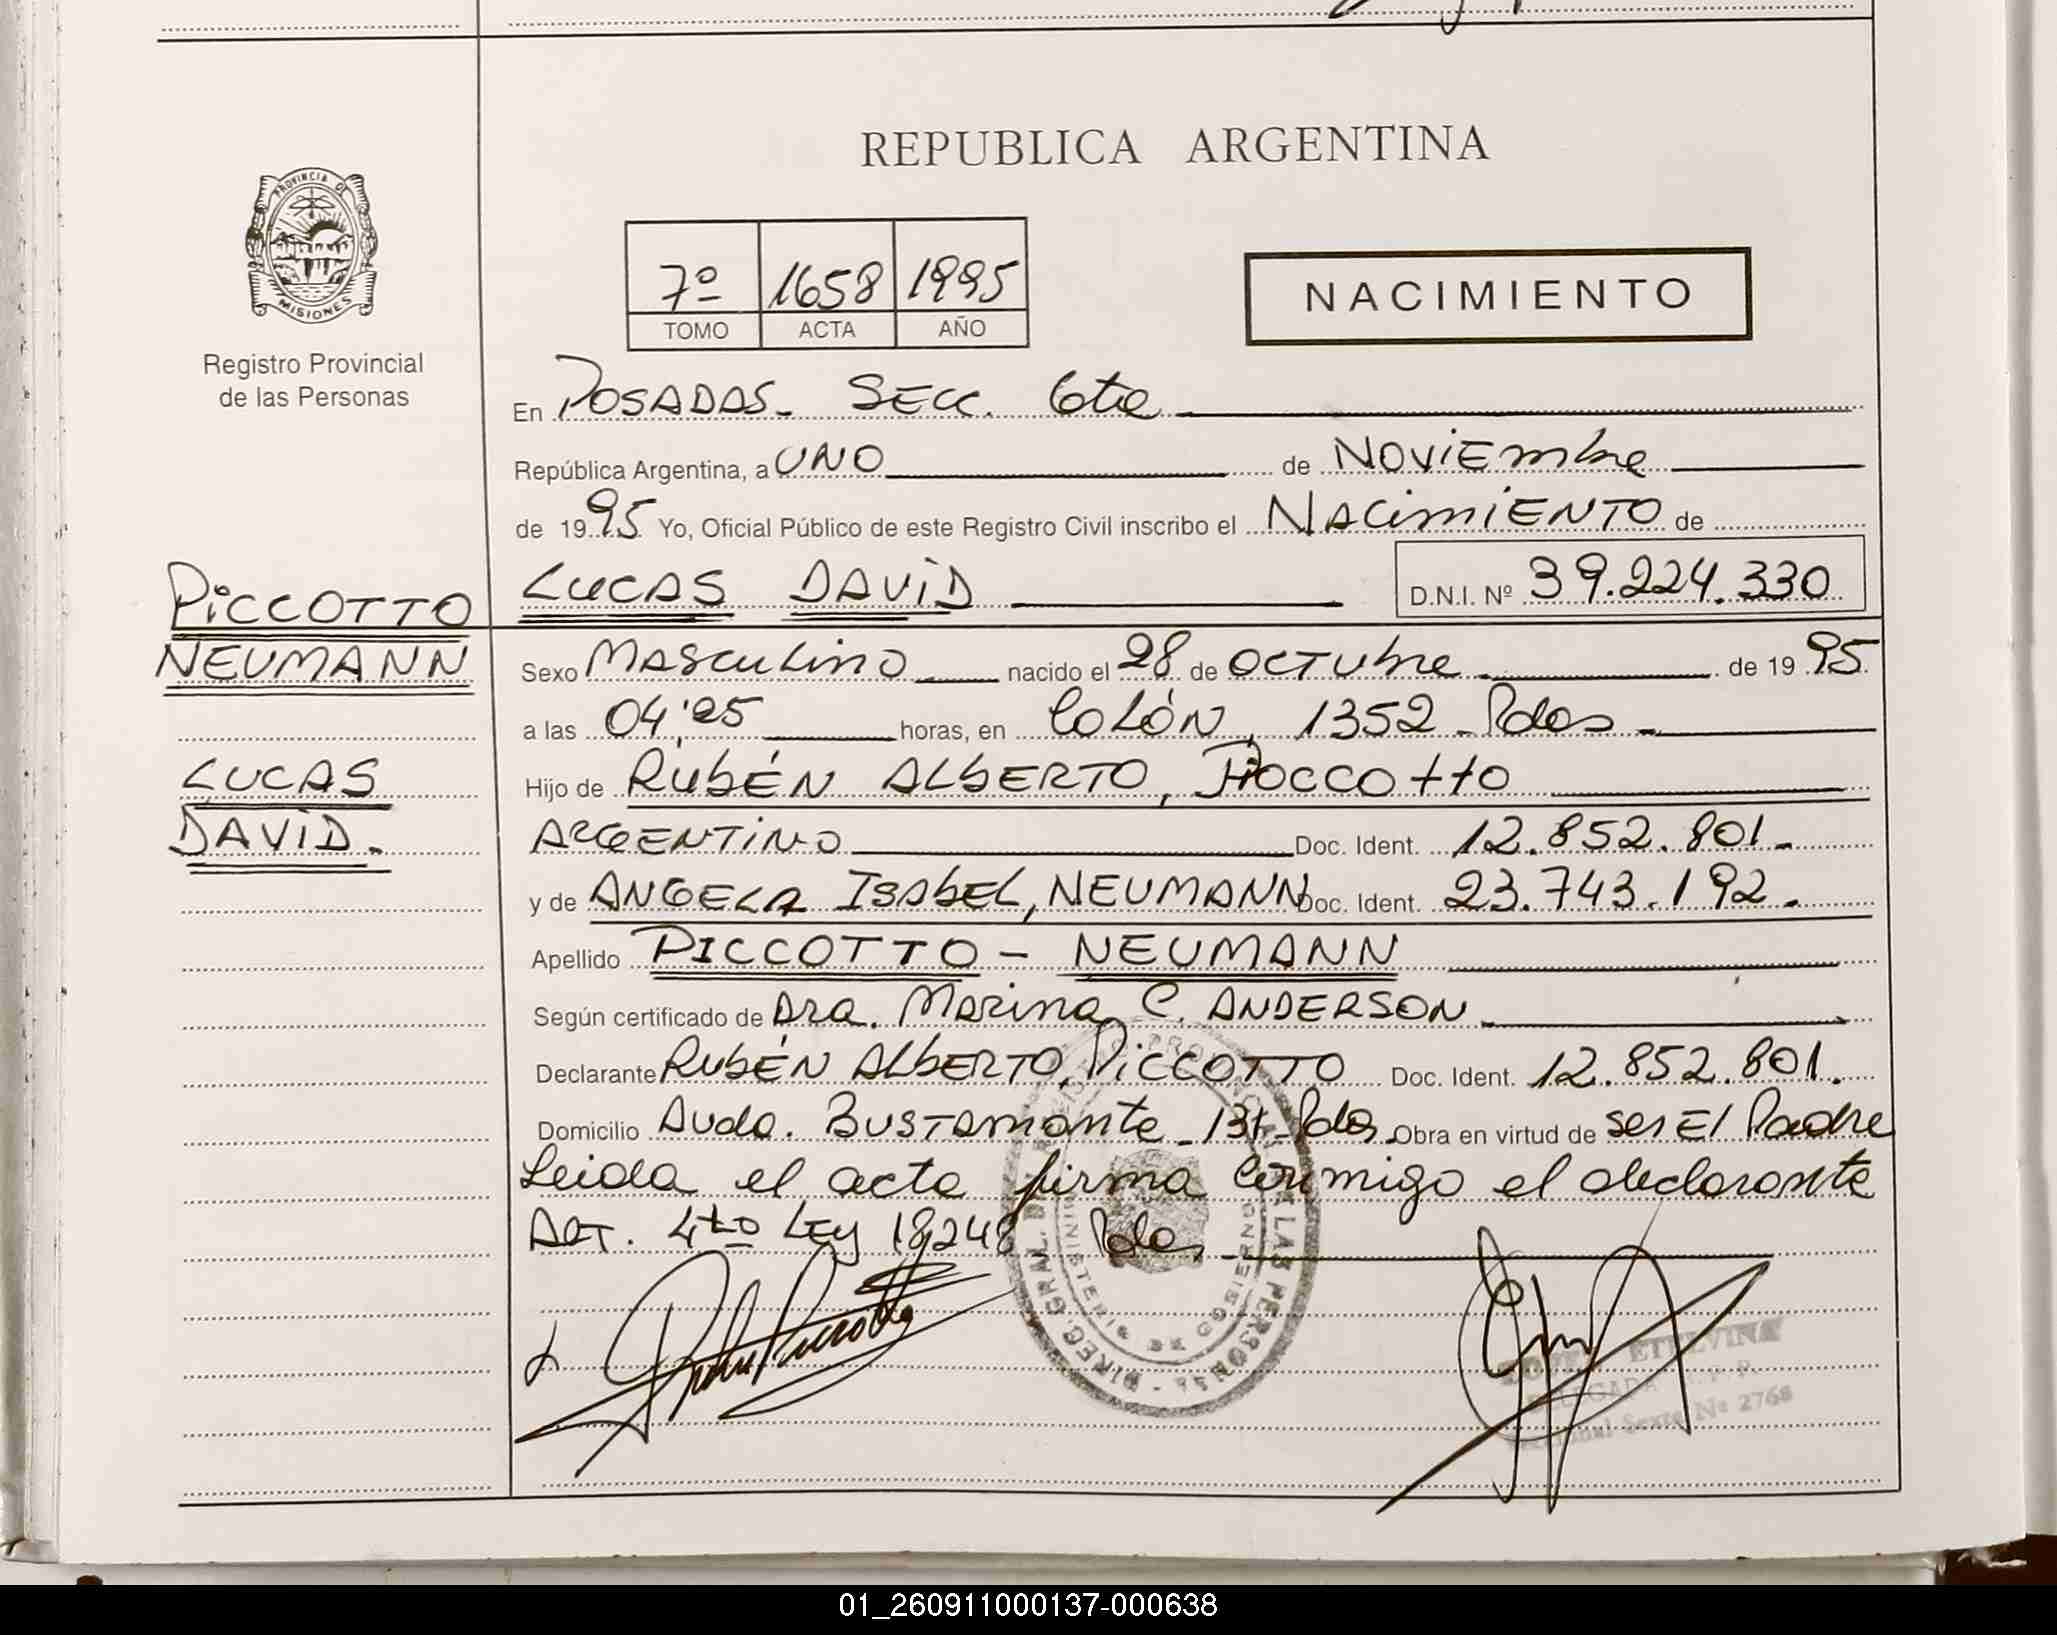 REPUBLICA ARGENTINA
PROVINCIA DE
MISIONES
Registro Provincial
de las Personas
7º 1658 1995
TOMO ACTA AÑO
NACIMIENTO
En POSADAS. SECC. 6ta
República Argentina, a UNO de NOViEmbre
de 1995 Yo, Oficial Público de este Registro Civil inscribo el NACimiENTO de
PiCCOTTO
NEUMANN
LUCAS
DAViD.
LUCAS DAViD D.N.I. Nº 39.224.330
Sexo MASCULino nacido el 28 de OCTUbre de 1995
a las 04:25 horas, en COLÓN, 1352 - Pdas
Hijo de RUbÉN ALbERTO, PiOCCOttO
ARGENTiNO Doc. Ident. 12.852.801.
y de ANGELA ISAbEL, NEUMANN Doc. Ident. 23.743.192.
Apellido PICCOTTO - NEUMANN
Según certificado de Dra. Marina C. ANDERSON
Declarante RUbÉN ALbERTO, PiCCOTTO Doc. Ident. 12.852.801.
Domicilio Avda. BUSTamante - 131 Pdas. Obra en virtud de ser El Padre
Leida el acta firma conmigo el declarante
ART. 4to LEy 18248 Pdas
DIREC. GRAL. DEL REGISTRO PROVINCIAL DE LAS PERSONAS
MINISTERIO DE GOBIERNO
ETELVINA
DELEGADA R. P. P.
Seccional Sexta Nº 2768
01_260911000137-000638